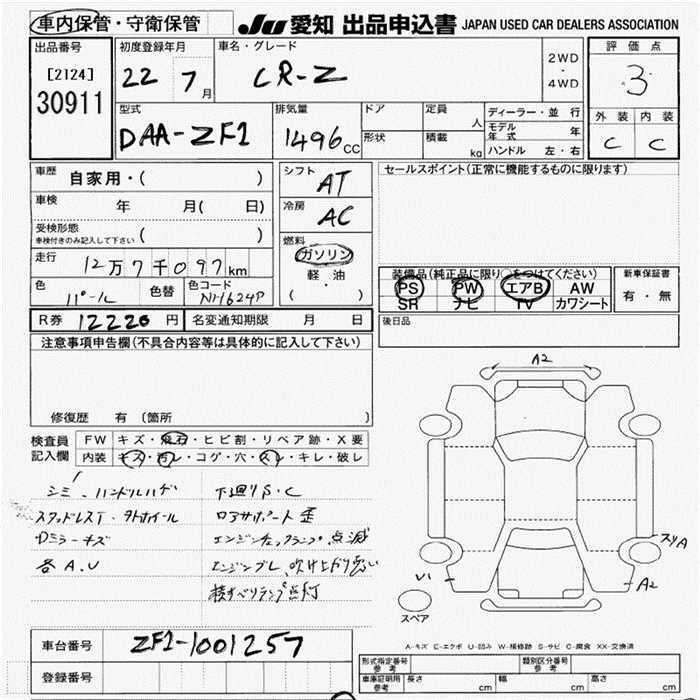 車内保管・守衛保管 JU 愛知 出品申込書 JAPAN USED CAR DEALERS ASSOCIATION
出品番号 初度登録年月 車名・グレード 評価点
[2124] 22 7月 CR-Z 2WD・4WD 3
30911
型式 排気量 ドア 定員 人 ディーラー・並行 外装 内装
DAA-ZF1 1496cc 形状 積載 kg モデル年式 年 C C
ハンドル 左・右
車歴 自家用・( ) シフト AT セールスポイント(正常に機能するものに限ります)
車検 年 月( 日) 冷房 AC
受検形態 ( )
車検付きのみ記入して下さい
燃料 ガソリン
軽・油
( ・ )
走行 12万7千097km
装備品(純正品に限り○をつけてください) 新車保証書
PS PW エアB AW 有・無
SR ナビ TV カワシート
色 パール 色替 色コード NH624P
R券 12220円 名変通知期限 月 日 後日品
注意事項申告欄(不具合内容等は具体的に記入して下さい)
修復歴 有 〔箇所
検査員 FW キズ・飛石・ヒビ割・リペア跡・X要
記入欄 内装 キズ・汚レ・コゲ・穴・スレ・キレ・破レ
シミ・ハンドルハゲ 下廻りS・C
スタッドレスT・タトホイール ロアサポート歪
Dミラーキズ エンジンチェックランプ点滅
各A.U エンジンブレ、吹け上がり悪い
横すべりランプ点灯
A2
スリA
V1
A2
スペア
A-キズ E-エクボ U-凹み W-補修跡 S-サビ C-腐食 XX-交換済
車台番号 ZF1-1001257
登録番号
形式指定番号 参考 類別区分番号 参考
車庫証明用 参考 長さ cm 幅 cm 高さ cm